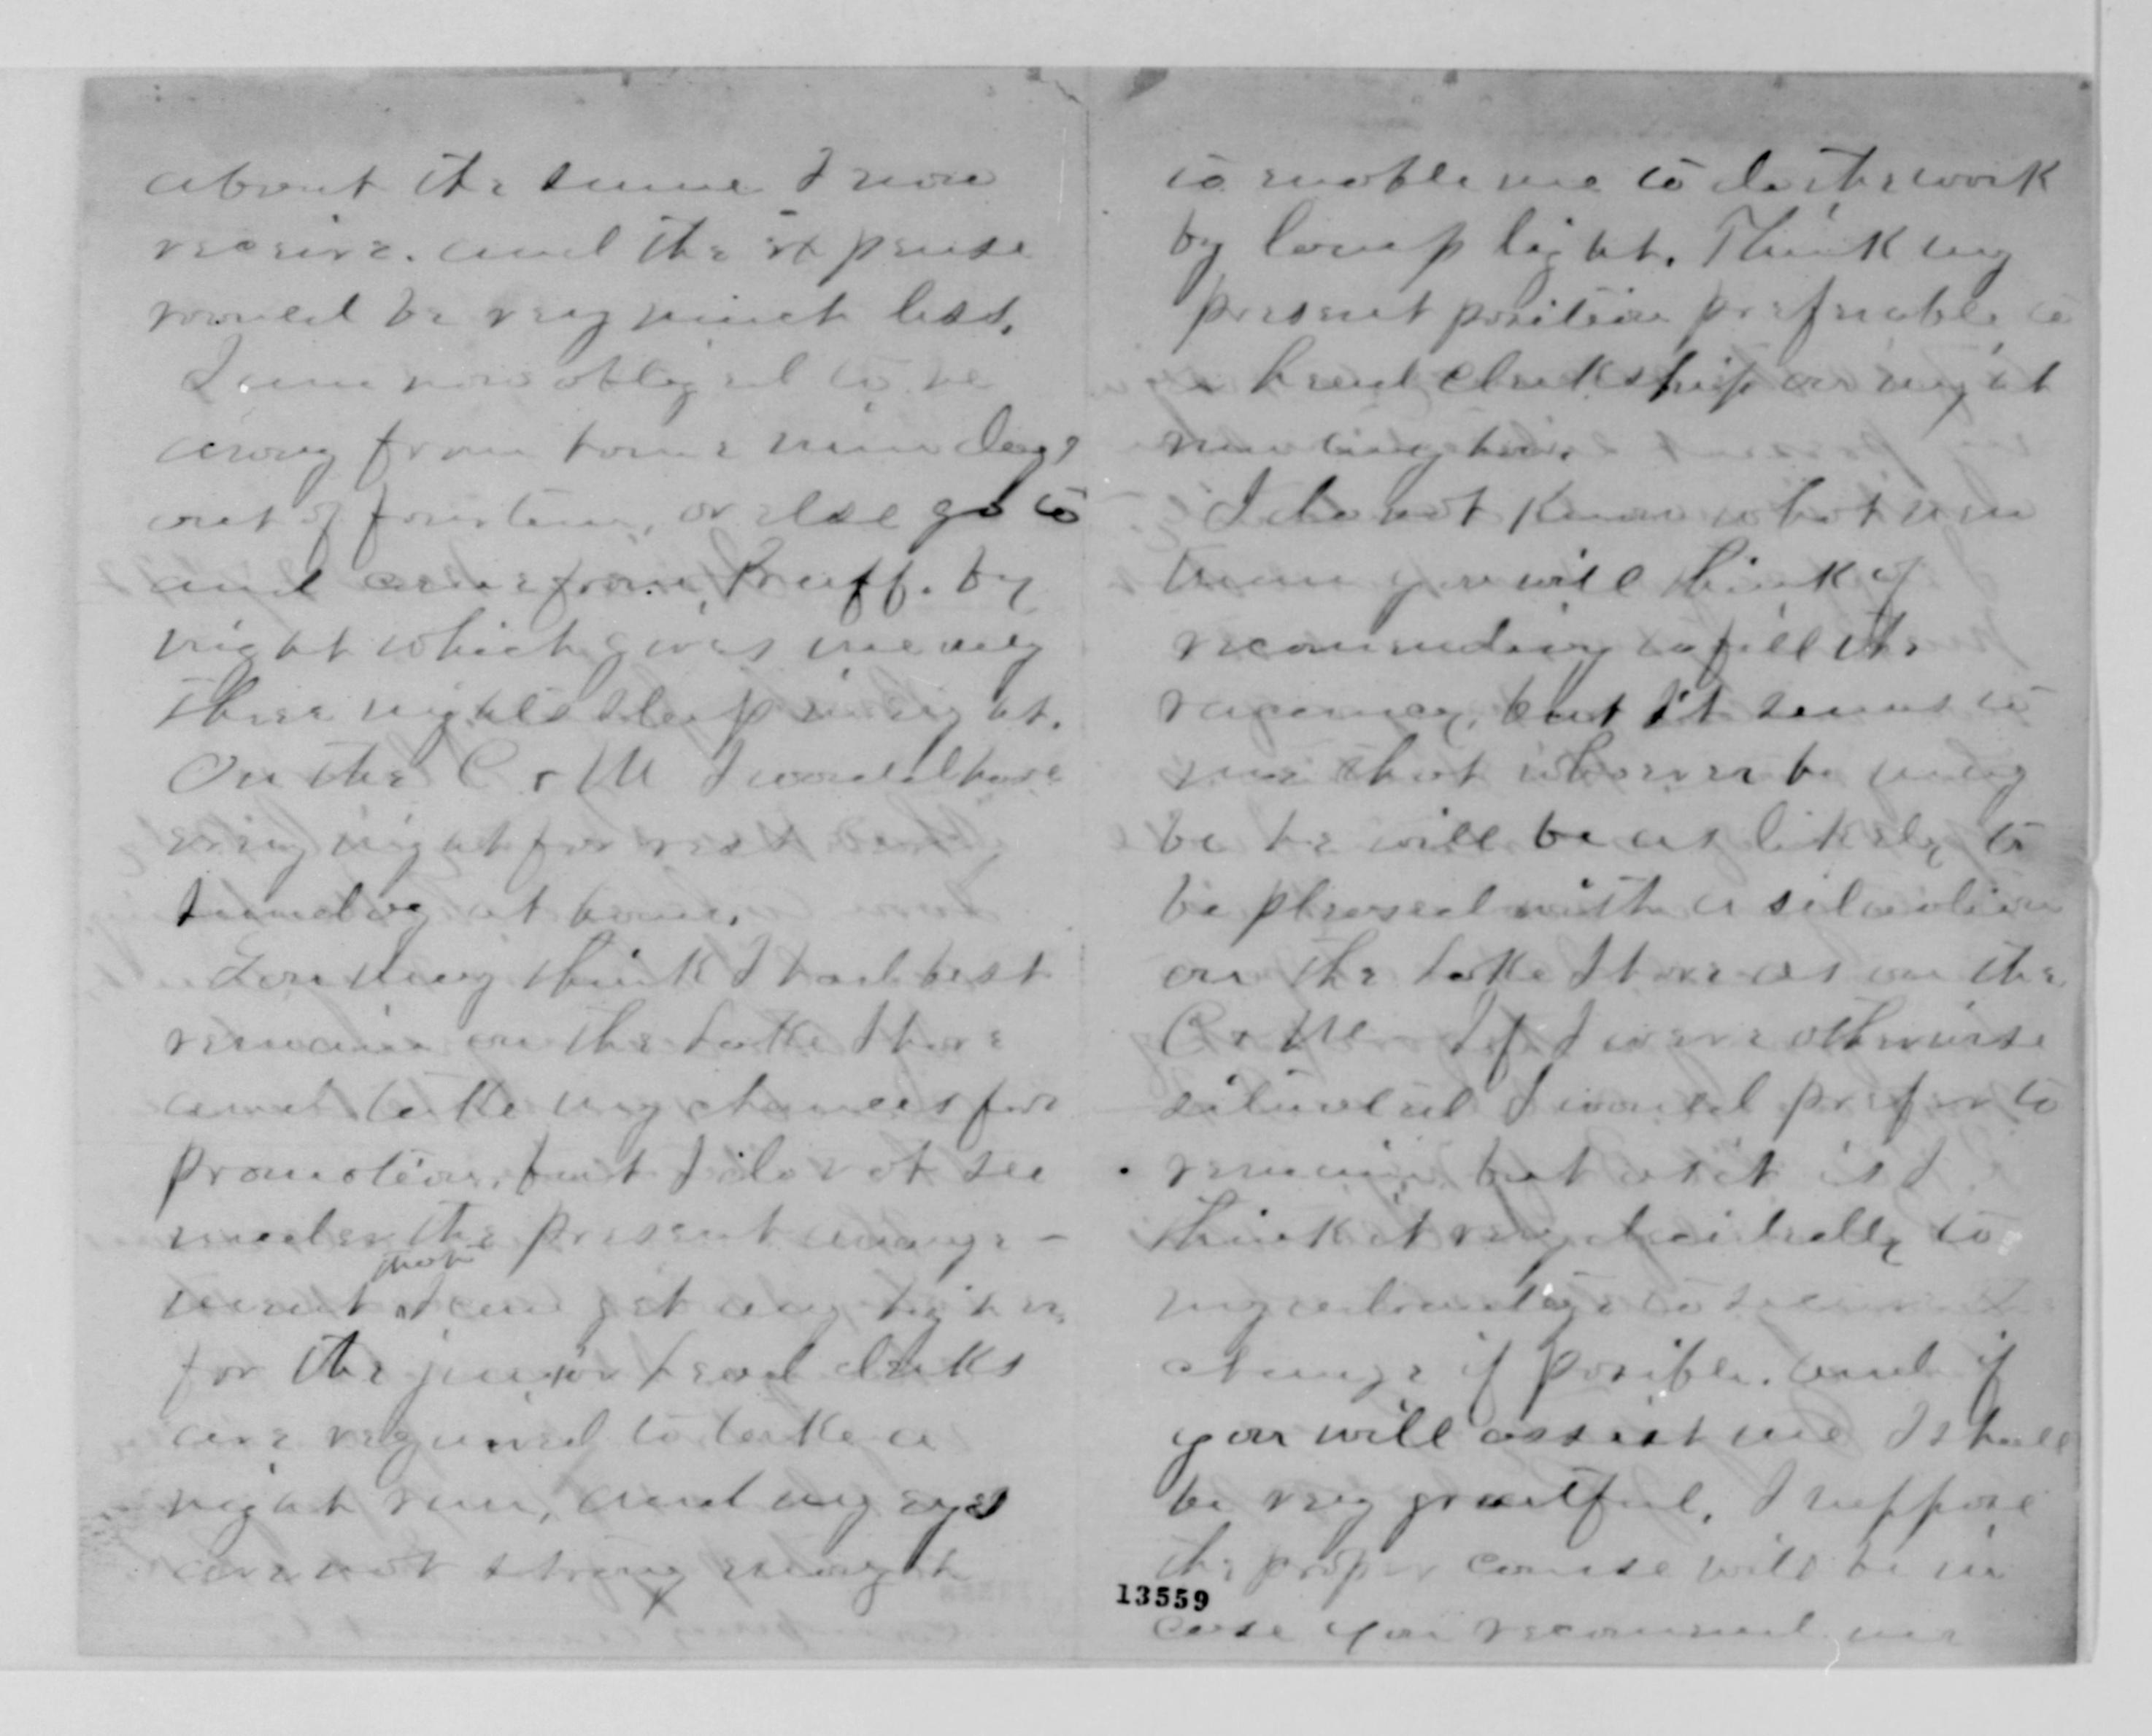 about the same I now
receive. and the expense
would be very much less.
I am now obliged to be
away from home nine days
out of fourteen, or else go to
and come from Buff. by
night which gives me only
three nights sleep in eight.
On the C & M I would have
every night for rest
Sunday at home.
You may think I had best
remain on the Lake Shore
and take my chances for
promotion, but I do not see
under the present arrange-
ment that I can get any higher,
for the junior head clerks
are required to take a
night run, and my eyes
are not strong enough
to enable me to do the work
by lamp light. Think my
present position preferable to
a head clerkship on night
run any how.
I do not know what
you will think of
recommending to fill the
vacancy, but it seems to
me that whoever he may
be he will be as likely to
be pleased with a situation
on the Lake Shore as on the
C & M - If I were otherwise
situated I would prefer to
remain but as it is I
think it very decidedly to
my advantage to secure
change if posible. and if
you will assist me I shall
be very greatful. I suppose
the proper course will be in
case you recommend me
13559